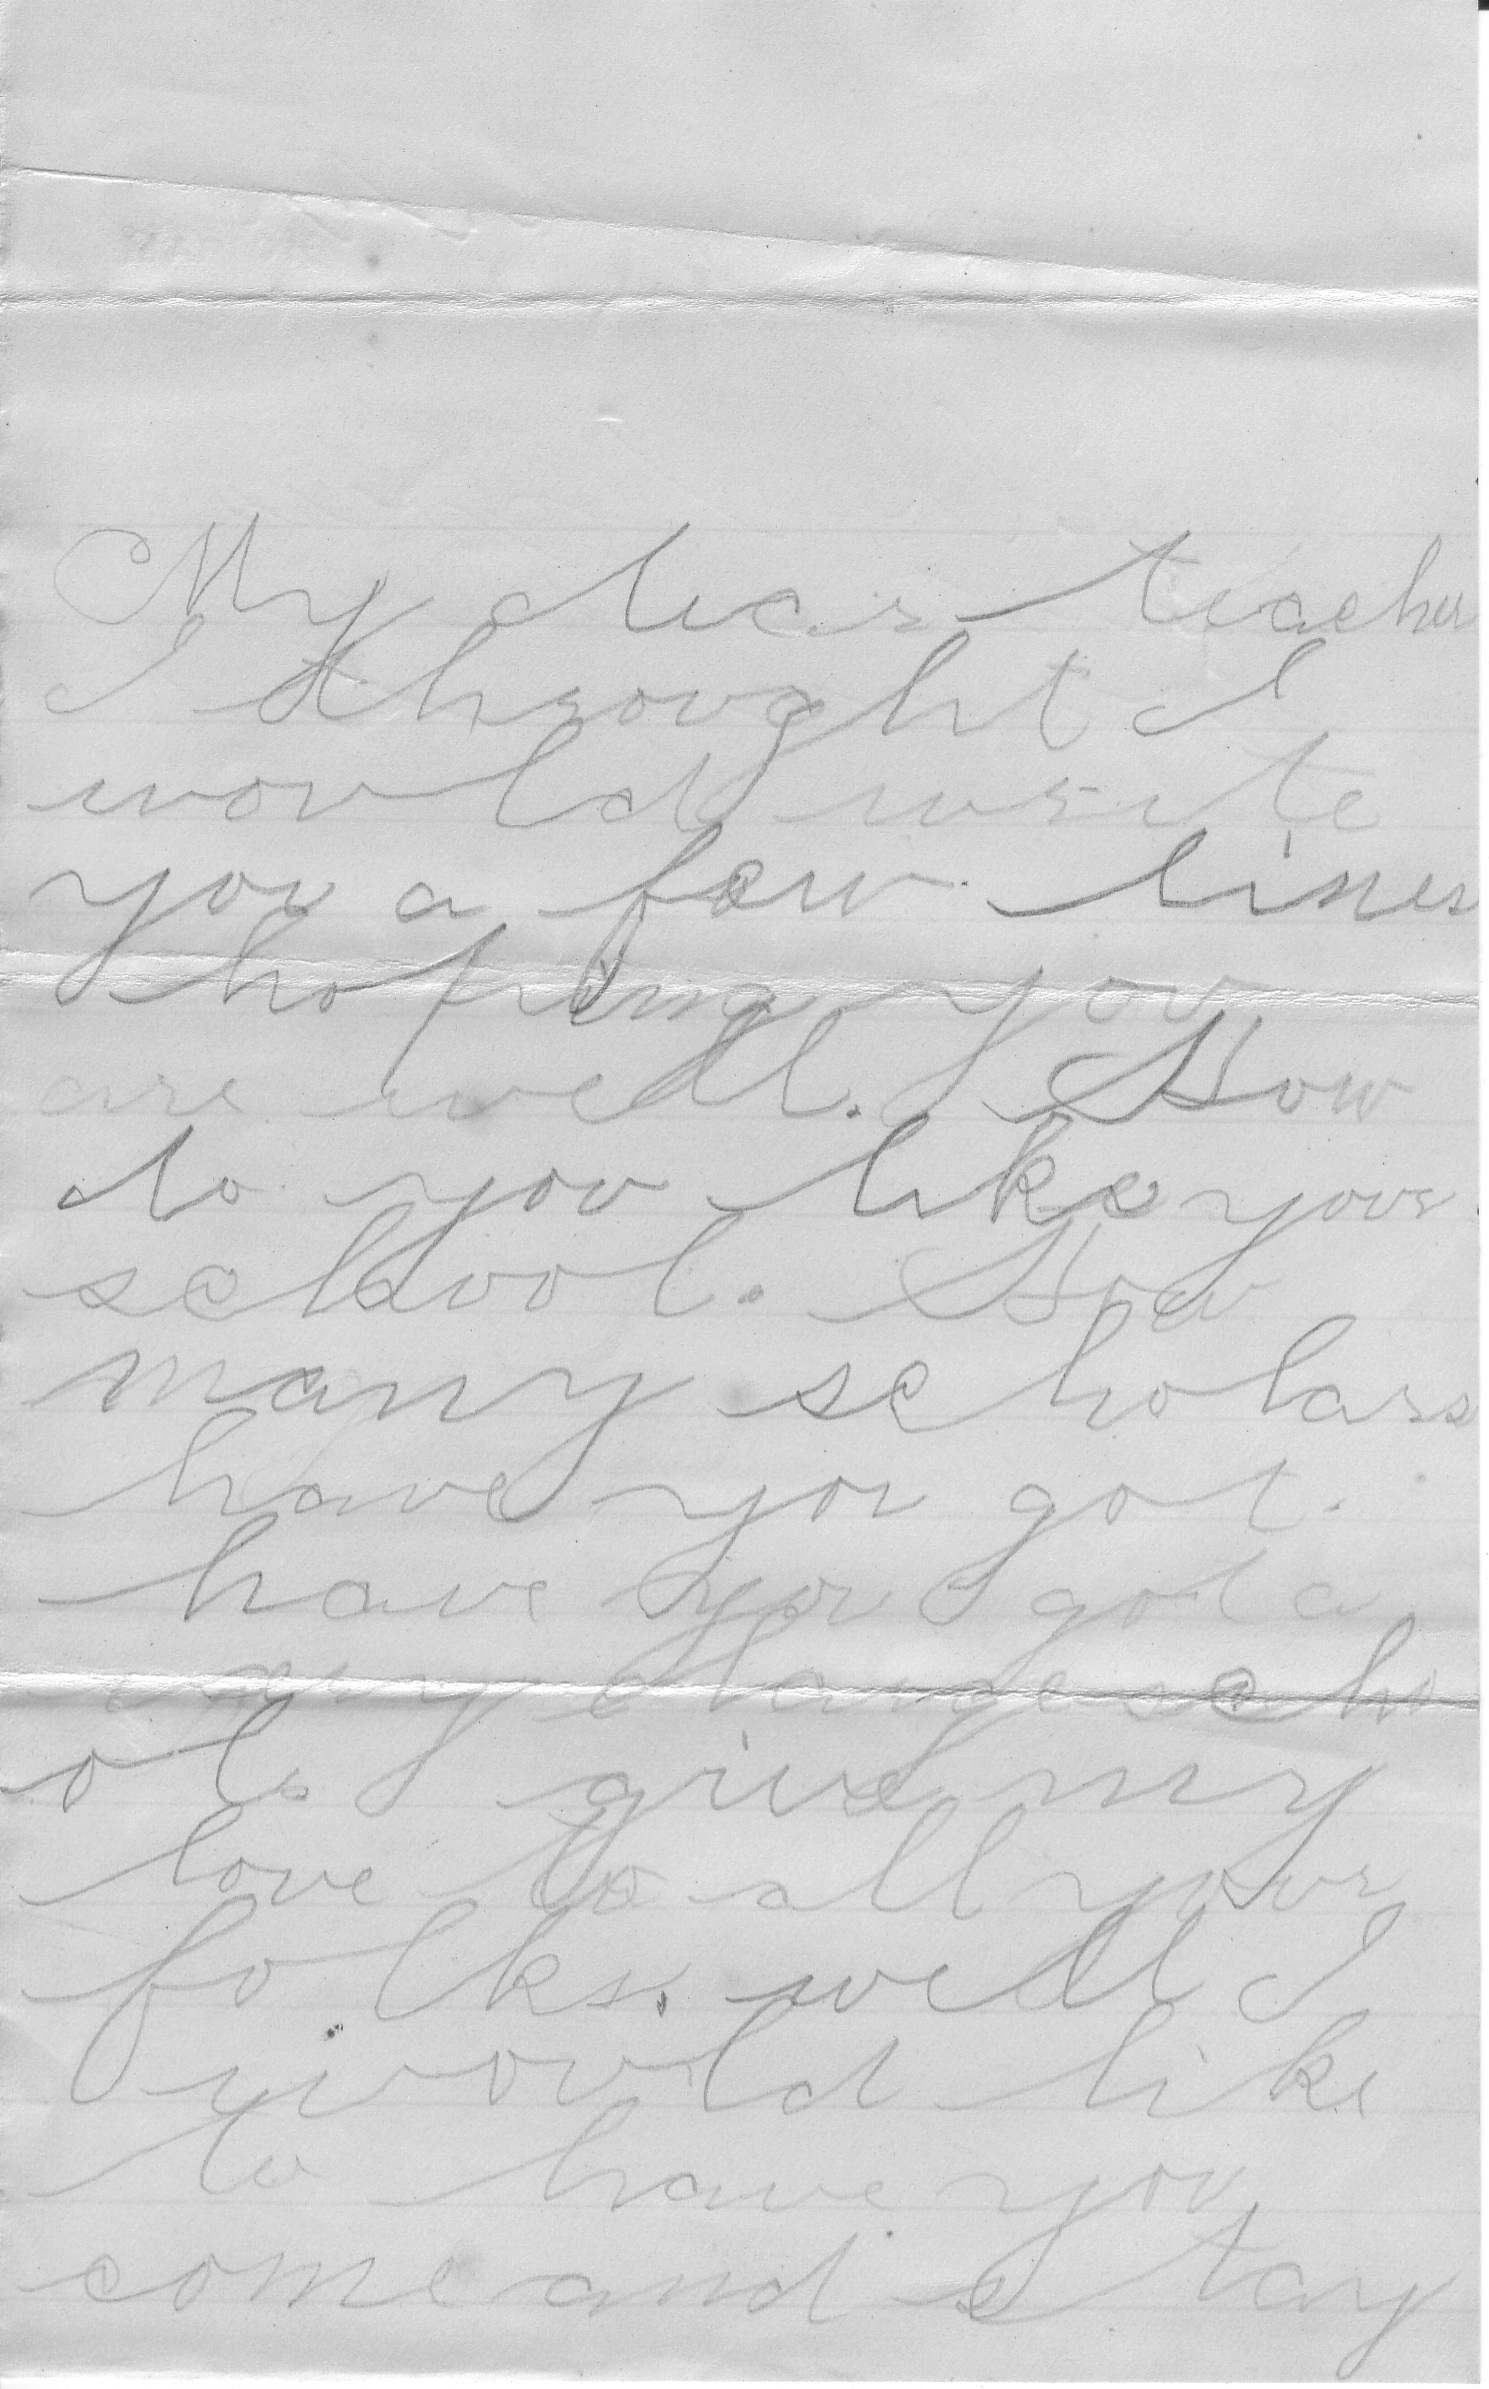 My dear teacher
I throught I
would write
you a few lines
hoping you
are well. How
do you like your
school. How
many scholars
have you got.
have you got a
very large scho
ol. give my
love to all your
folks. well I
would like
to have you
come and stay